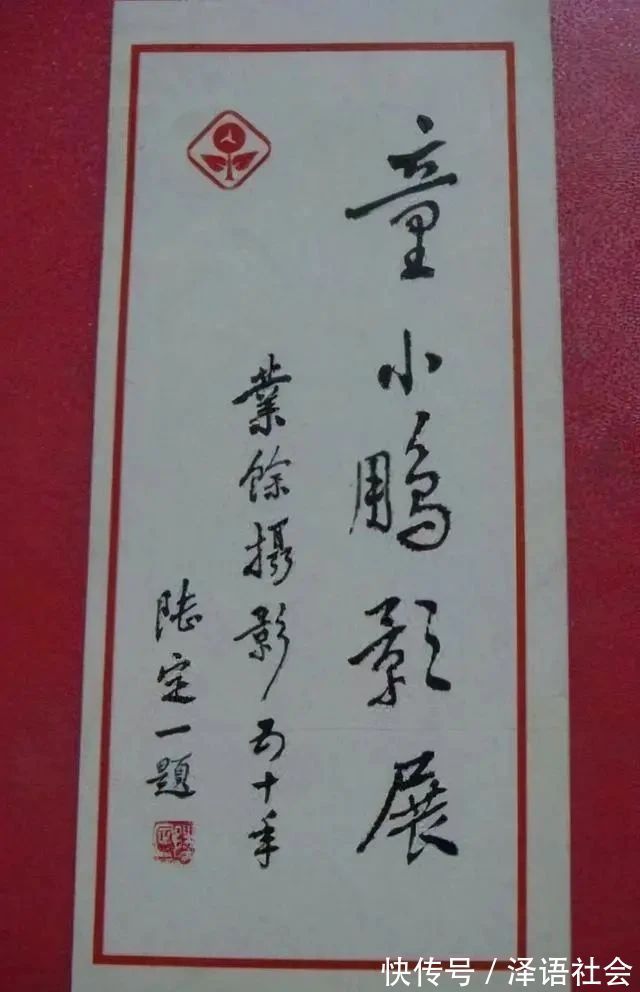 童小鹏影展
業餘攝影五十年
陸定一題
快传号/泽语社会